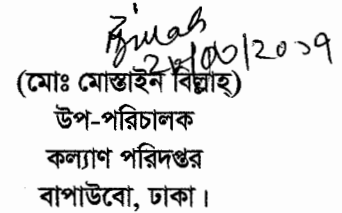 (মোঃ মোস্তাইন বিল্লাহ্)
উপ-পরিচালক
কল্যাণ পরিদপ্তর
বাপাউবো, ঢাকা।